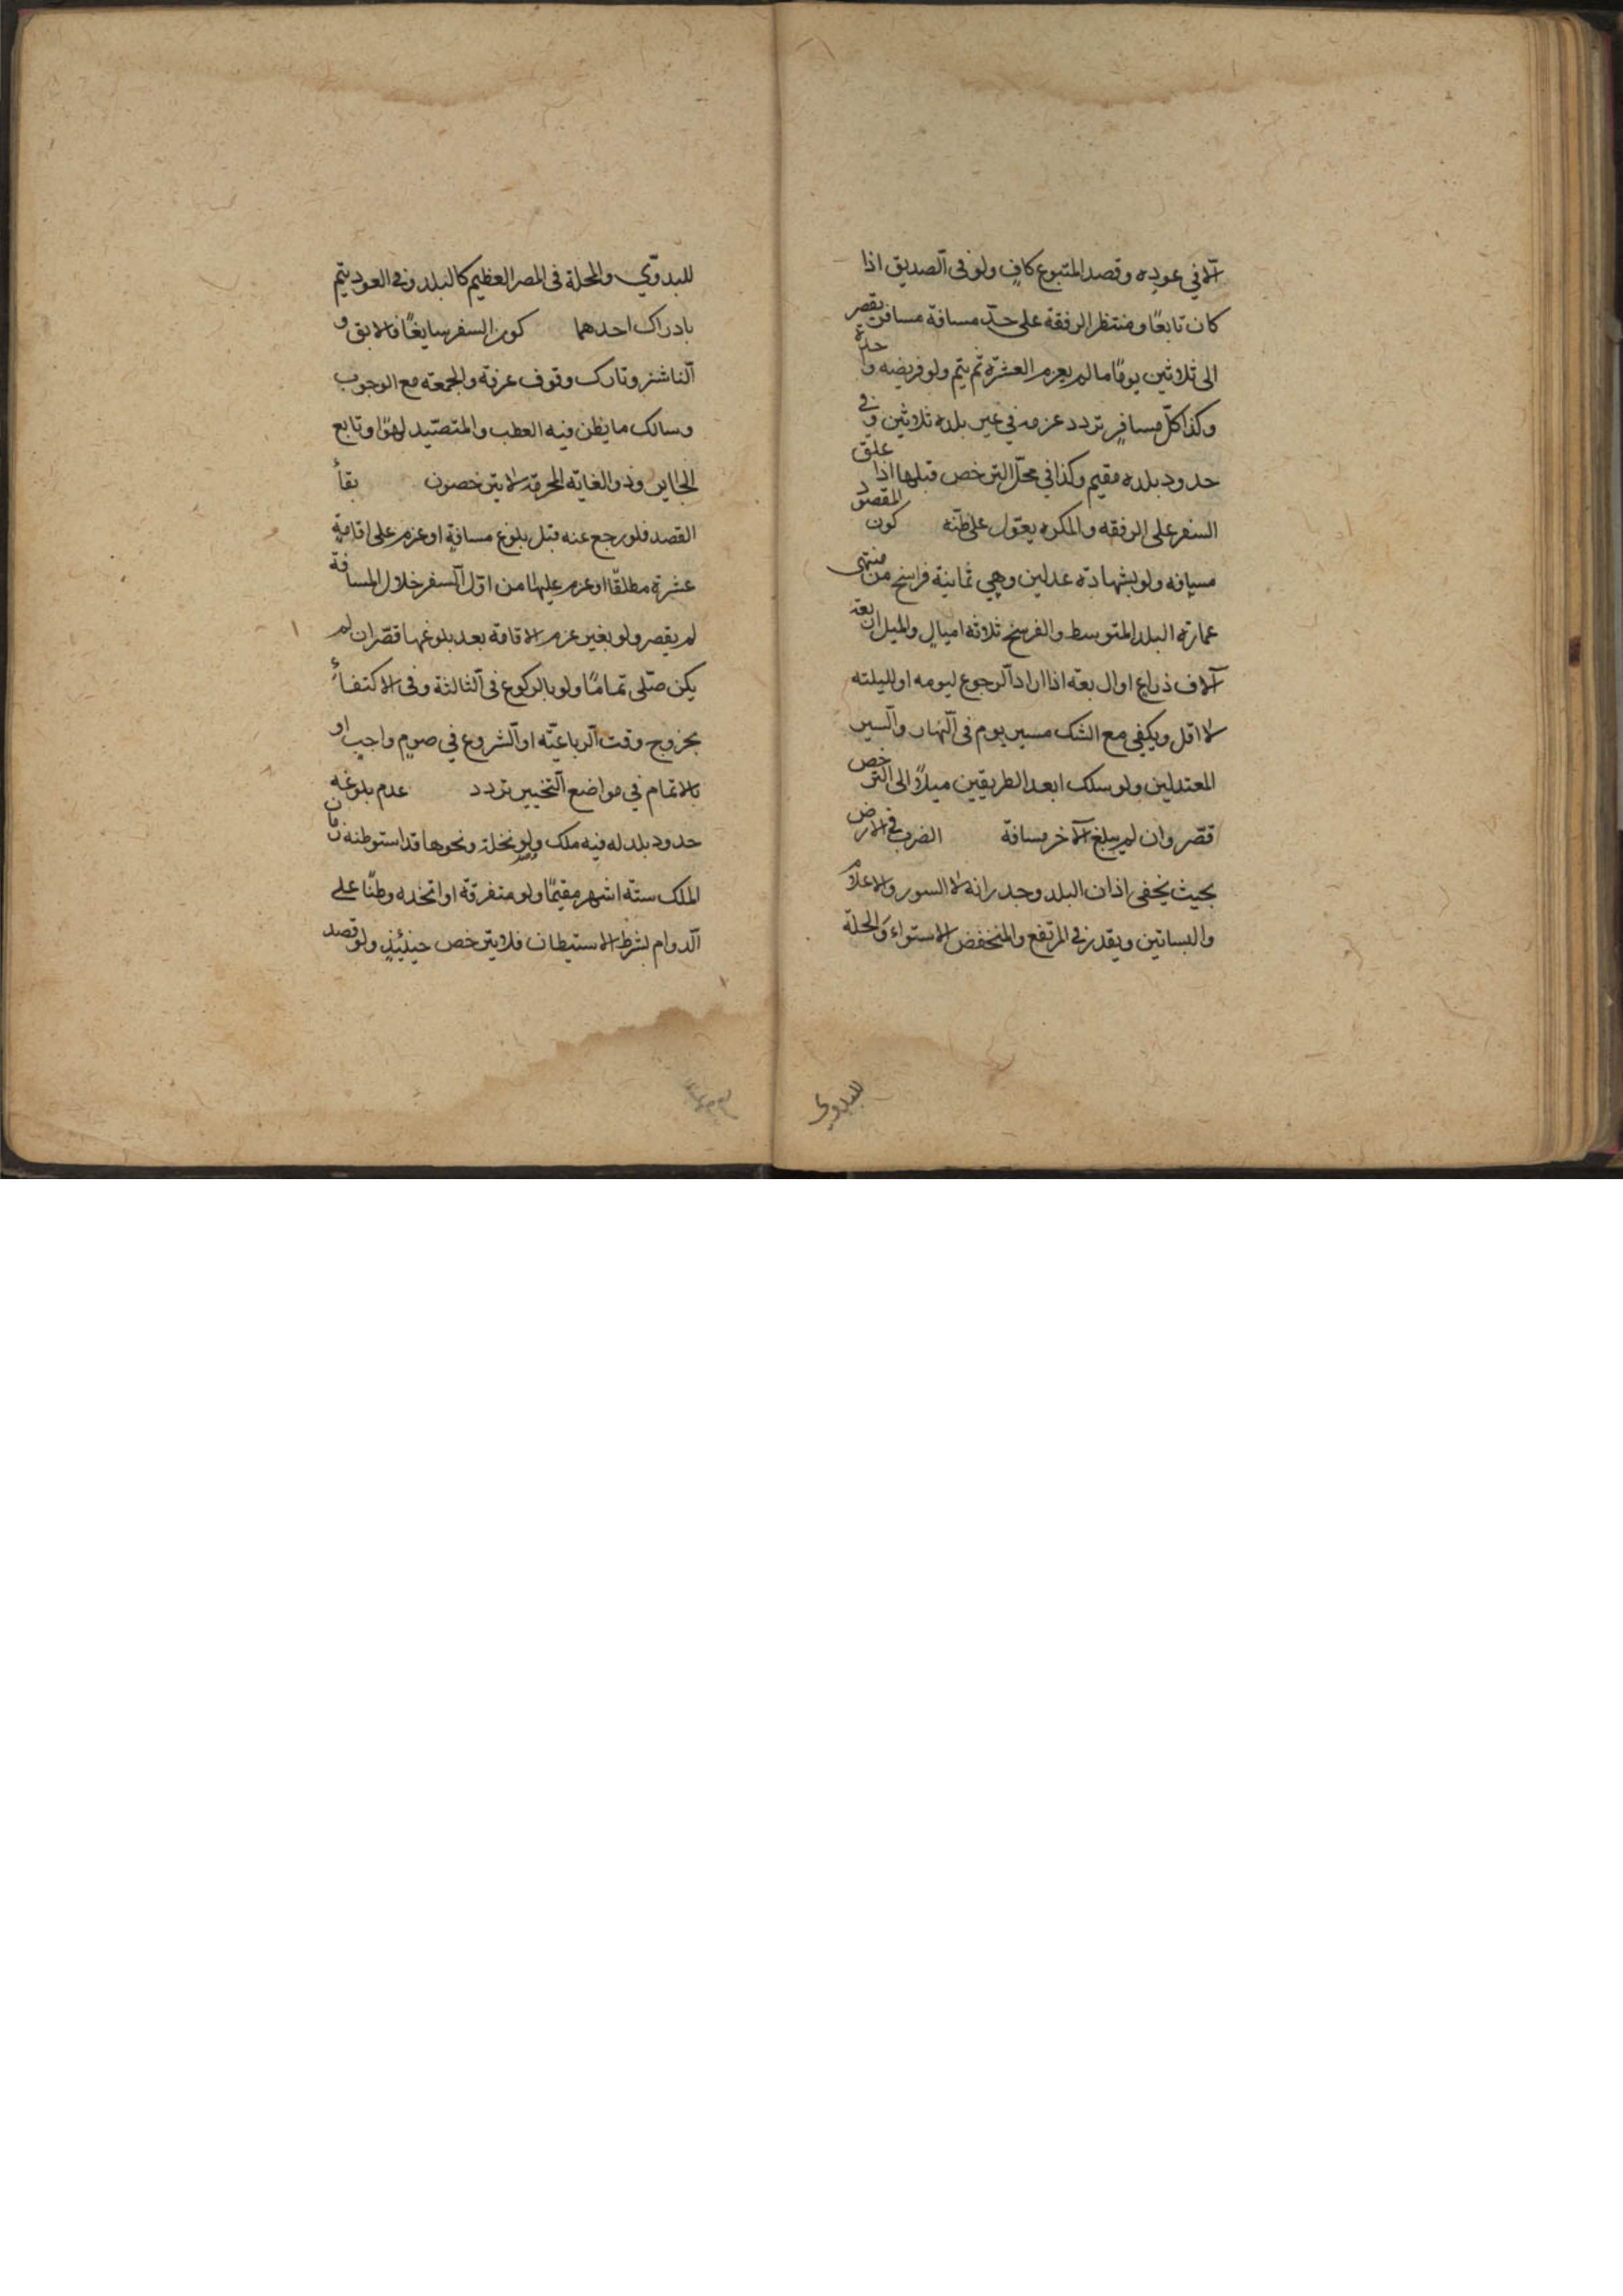 الا في عوده وقصد المتبوع كاف ولو فى الصديق اذا
كان تابعًا ومنتظر الرفقة على حدّ مسافة مسافر يقصر
الى ثلاثين يومًا ما لم يعزم العشرة ثم يتم ولو فريضه واحدة
وكذا كلّ مسافرٍ تردد عزمه في غير بلده ثلاثين وفى
حدود بلده مقيم وكذا في محلّ الترخص قبلها اذا علق
السفر على الرفقه والمكره يعوّل على ظنّه كون المقصود
مسافه ولو بشهادة عدلين وهي ثمانية فراسخ من منتهى
عمارة البلد المتوسط والفرسخ ثلاثه اميالٍ والميل اربعة
آلاف ذراع او اربعة اذا اراد الرجوع ليومه او لليلته
لا اقل ويكفي مع الشك مسير يوم فى النهار والسير
المعتدلين ولو سلك ابعد الطريقين ميلاً الى الترخص
قصّر وان لم يبلغ الآخر مسافة الضرب فى الارض
بحيث يخفى اذان البلد وجدرانه لا السور والاعلام
والبساتين ويقدر فى المرتفع والمنخفض الاستواء والحلّة
للبدوي
للبدوّي والمحلة فى المصر العظيم كالبلد وفى العود يتم
بادراك احدهما كون السفر سايغًا فالابق و
الناشز وتارك وقوف عرفة والجمعة مع الوجوب
وسالك ما يظن فيه العطب والمتصيّد لهوًا وتابع
الجاير وذو الغاية المحرمة لا يترخصون بقأ
القصد فلو رجع عنه قبل بلوغ مسافةٍ او عزم على اقامةٍ
عشرة مطلقًا او عزم عليها من اوّل السفر خلال المسافة
لم يقصر ولو بغير عزم الاقامة بعد بلوغها قصّر ان لم
يكن صلّى تمامًا ولو بالركوع فى الثالثة وفى الاكتفأ
بخروج وقت الرباعيّه او الشروع في صومٍ واجبٍ او
بالاتمام في مواضع التخيير تردد عدم بلوغه
حدود بلد له فيه ملك ولو نخلة ونحوها قد استوطنه زمان
الملك ستة اشهر مقيمًا ولو متفرقة او اتخذه وطنًا على
الدوام بشرط الاستيطان فلا يترخص حينئذٍ ولو قصد